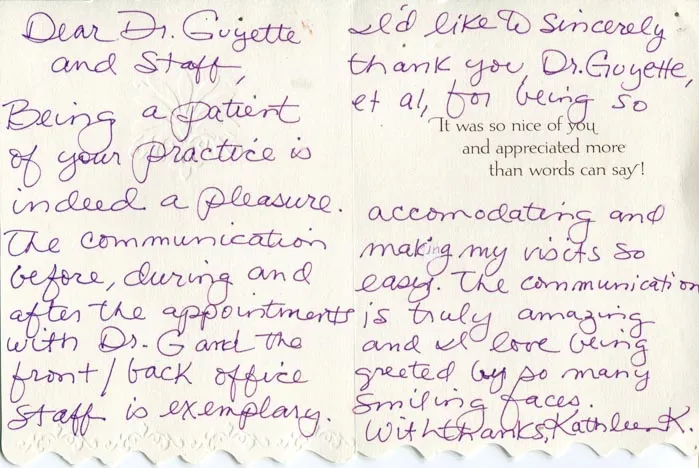 Dear Dr. Guyette
and Staff,
Being a patient
of your practice is
indeed a pleasure.
The communication
before, during and
after the appointments
with Dr. G and the
front/back office
staff is exemplary.
I'd like to sincerely
thank you, Dr. Guyette,
et al, for being so
It was so nice of you
and appreciated more
than words can say!
accomodating and
making my visits so
easy. The communication
is truly amazing
and I love being
greeted by so many
smiling faces.
With thanks, Kathleen K.